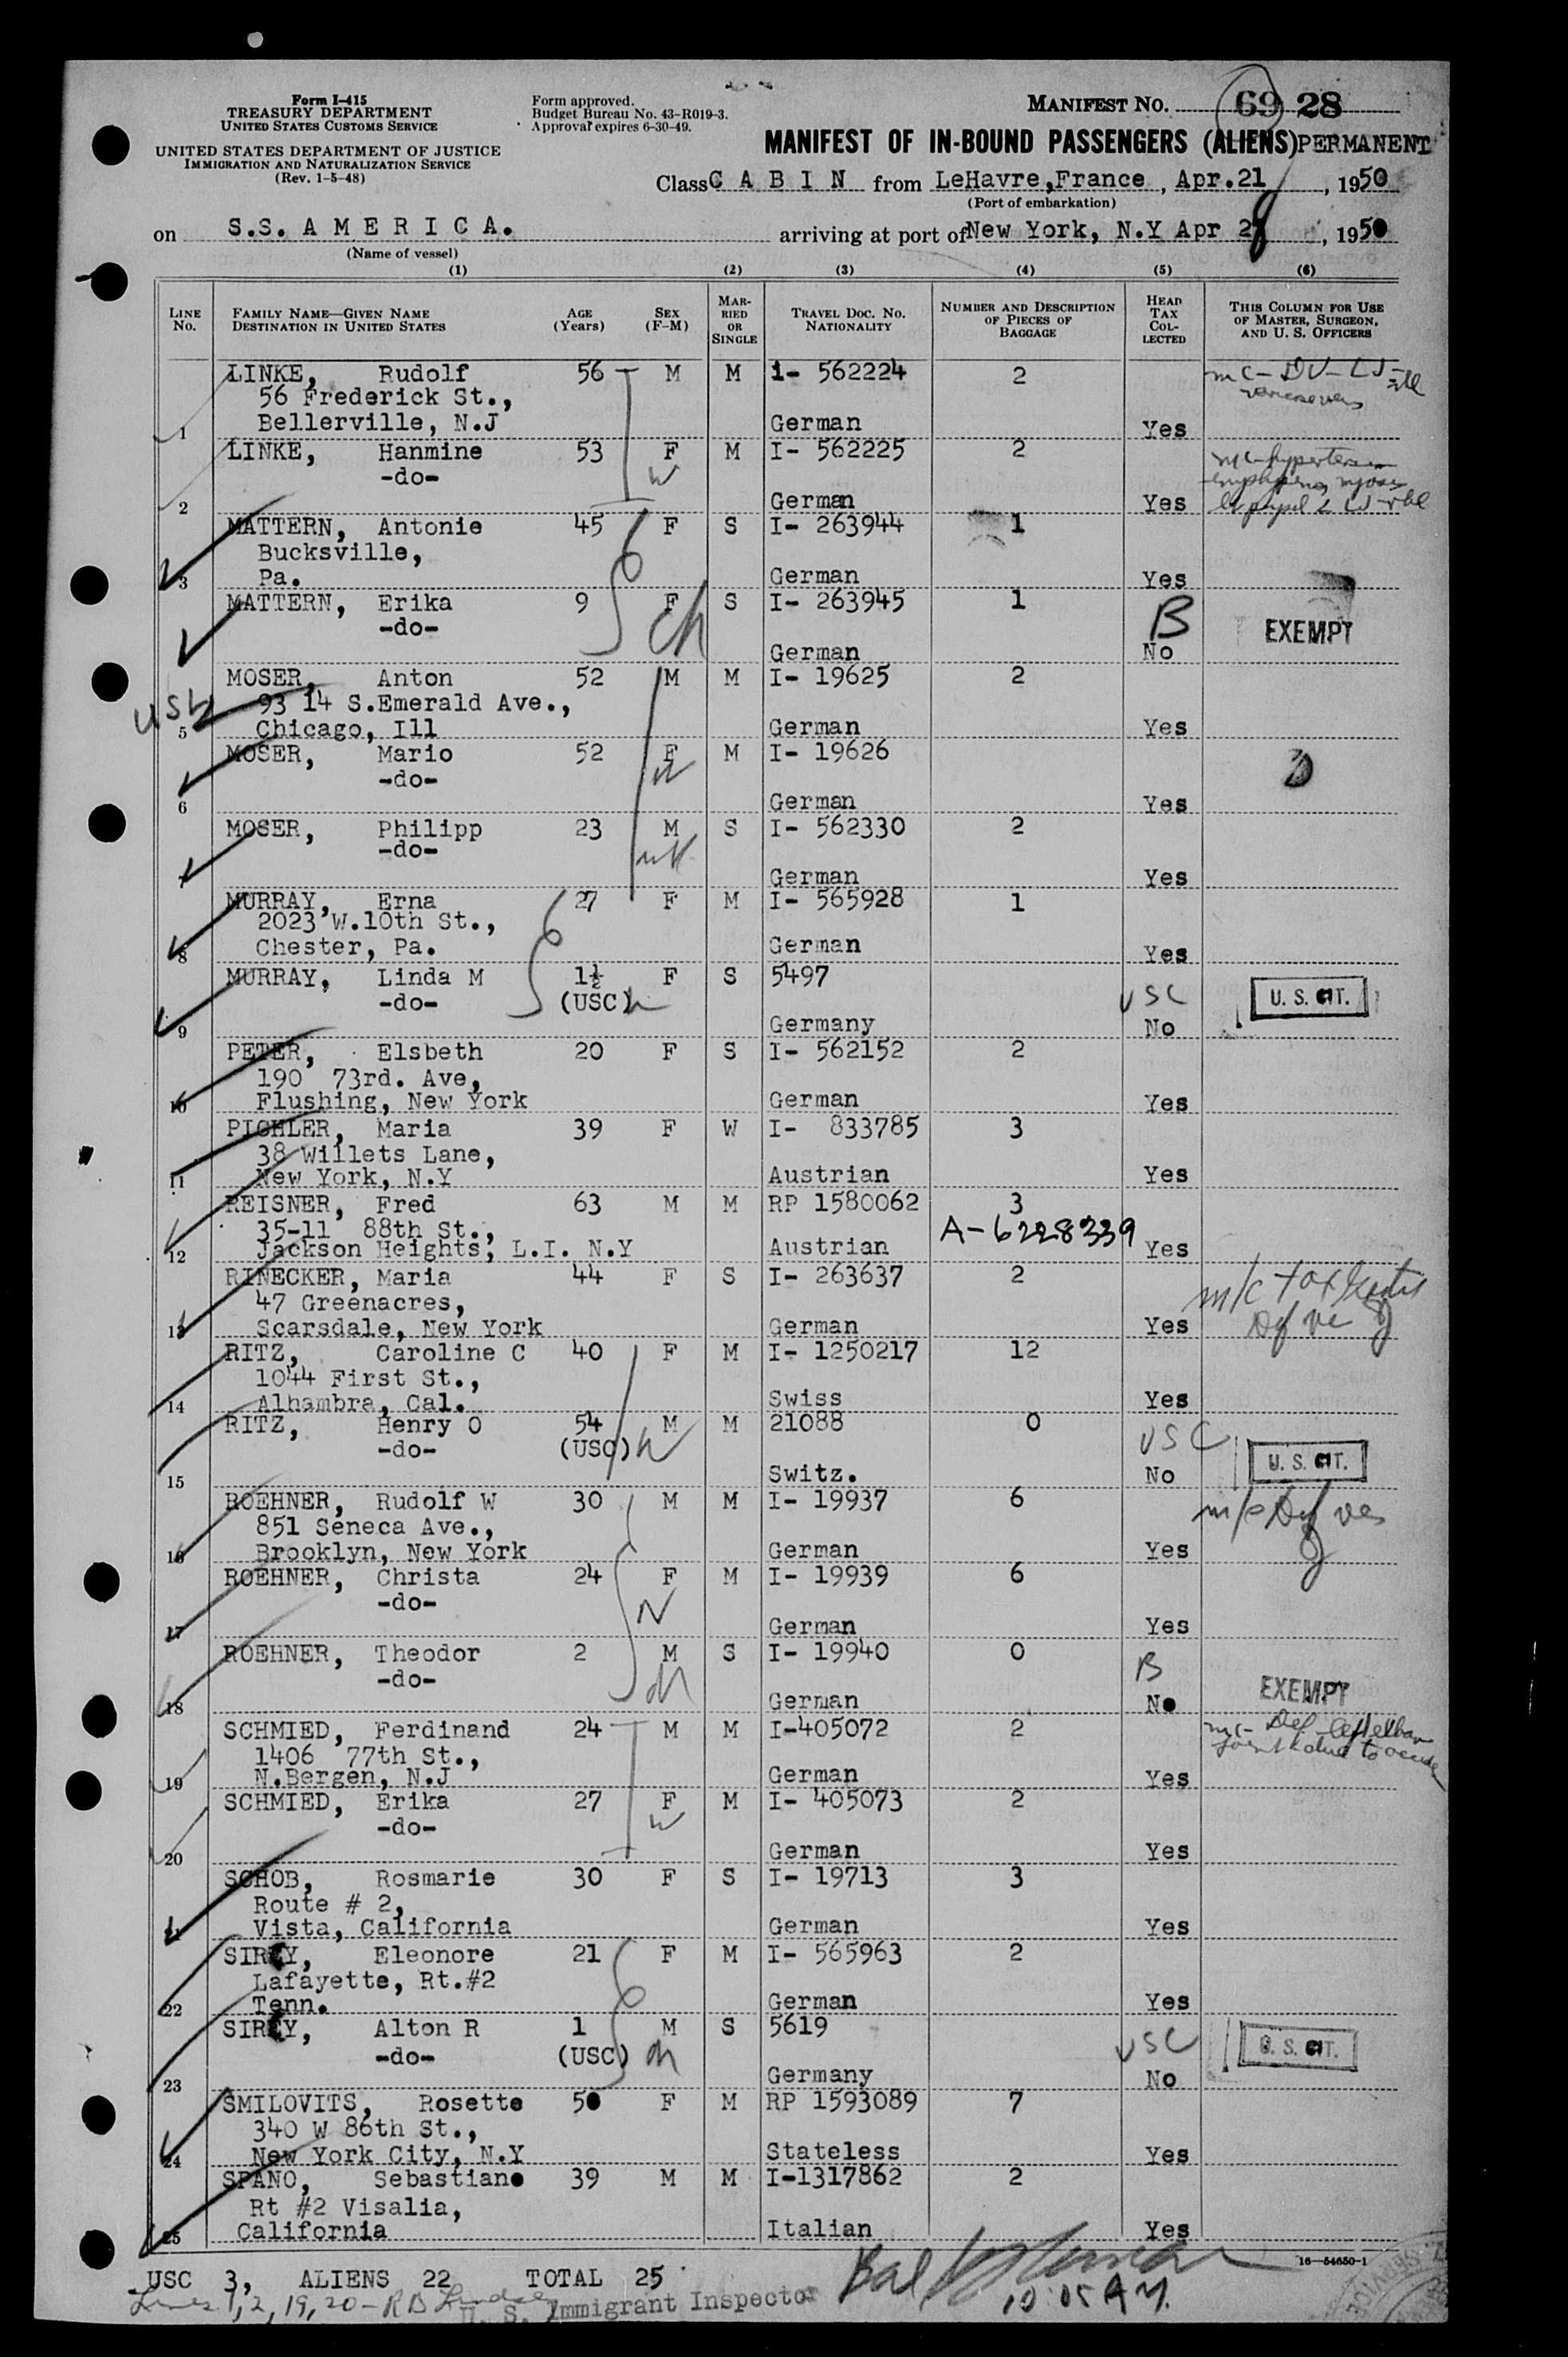 Form I-415
TREASURY DEPARTMENT
UNITED STATES CUSTOMS SERVICE
UNITED STATES DEPARTMENT OF JUSTICE
IMMIGRATION AND NATURALIZATION SERVICE
(Rev. 1-5-48)
Form approved.
Budget Bureau No. 43-R019-3.
Approval expires 6-30-49.
MANIFEST NO. 69 28
MANIFEST OF IN-BOUND PASSENGERS (ALIENS) PERMANENT
Class C A B I N from LeHavre,France, Apr.21, 1950
(Port of embarkation)
on S.S. A M E R I C A. arriving at port of New York, N.Y Apr 28, 1950
(Name of vessel)
(1) (2) (3) (4) (5) (6)
LINE No. FAMILY NAME—GIVEN NAME DESTINATION IN UNITED STATES AGE (Years) SEX (F-M) MARRIED OR SINGLE TRAVEL DOC. NO. NATIONALITY NUMBER AND DESCRIPTION OF PIECES OF BAGGAGE HEAD TAX COLLECTED THIS COLUMN FOR USE OF MASTER, SURGEON, AND U. S. OFFICERS
LINKE, Rudolf 56 M M i- 562224 2
56 Frederick St.,
1 Bellerville, N.J German Yes
LINKE, Hanmine 53 F M I- 562225 2
-do- W
2 German Yes
MATTERN, Antonie 45 F S I- 263944 1
Bucksville,
3 Pa. German Yes
MATTERN, Erika 9 F S I- 263945 1 B EXEMPT
-do- ch
German No
MOSER, Anton 52 M M I- 19625 2
93 14 S.Emerald Ave.,
5 Chicago, Ill German Yes
MOSER, Mario 52 F M I- 19626
-do- W
6 German Yes
MOSER, Philipp 23 M S I- 562330 2
-do-
7 German Yes
MURRAY, Erna 27 F M I- 565928 1
2023 W.10th St.,
8 Chester, Pa. German Yes
MURRAY, Linda M 1½ F S 5497 USC U. S. CIT.
-do- (USC)
9 Germany No
PETER, Elsbeth 20 F S I- 562152 2
190 73rd. Ave,
10 Flushing, New York German Yes
PICHLER, Maria 39 F W I- 833785 3
38 Willets Lane,
11 New York, N.Y Austrian Yes
REISNER, Fred 63 M M RP 1580062 3
35-11 88th St., A-6228339
12 Jackson Heights, L.I. N.Y Austrian Yes
RINECKER, Maria 44 F S I- 263637 2
47 Greenacres,
13 Scarsdale, New York German Yes
RITZ, Caroline C 40 F M I- 1250217 12
1044 First St.,
14 Alhambra, Cal. Swiss Yes
RITZ, Henry O 54 M M 21088 0 USC U. S. CIT.
-do- (USC) W
15 Switz. No
ROEHNER, Rudolf W 30 M M I- 19937 6
851 Seneca Ave.,
16 Brooklyn, New York German Yes
ROEHNER, Christa 24 F M I- 19939 6
-do- W
17 German Yes
ROEHNER, Theodor 2 M S I- 19940 0 B EXEMPT
-do- ch
18 German No
SCHMIED, Ferdinand 24 M M I-405072 2
1406 77th St.,
19 N.Bergen, N.J German Yes
SCHMIED, Erika 27 F M I- 405073 2
-do- W
20 German Yes
SCHOB, Rosmarie 30 F S I- 19713 3
Route # 2,
21 Vista, California German Yes
SIREY, Eleonore 21 F M I- 565963 2
Lafayette, Rt.#2
22 Tenn. German Yes
SIREY, Alton R 1 M S 5619 USC U. S. CIT.
-do- (USC) ch
23 Germany No
SMILOVITS, Rosette 50 F M RP 1593089 7
340 W 86th St.,
24 New York City, N.Y Stateless Yes
SPANO, Sebastiano 39 M M I-1317862 2
Rt #2 Visalia,
25 California Italian Yes
16—54650-1
USC 3, ALIENS 22 TOTAL 25
Lines 1, 2, 19, 20 - R B
U. S. Immigrant Inspector 10:05 AM.